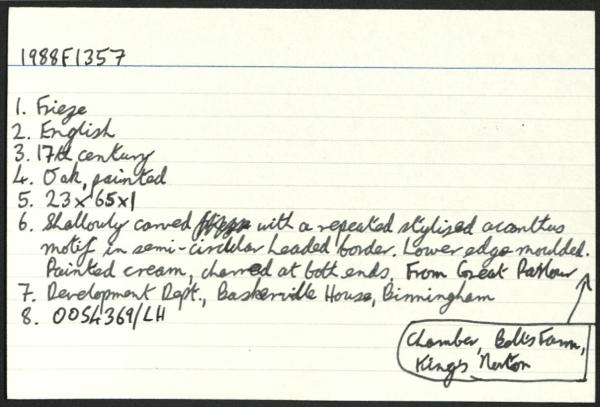 1988F1357
1. Frieze
2. English
3. 17th century
4. Oak, painted
5. 23x65x1
6. Shallowly carved with a repeated stylised acanthus
motif in semi-circular beaded border. Lower edge moulded.
Painted cream, charred at both ends. From Great Parlour
7. Development Dept., Baskerville House, Birmingham
8. 0054369/LH
Chamber, Bell's Farm,
King's Norton